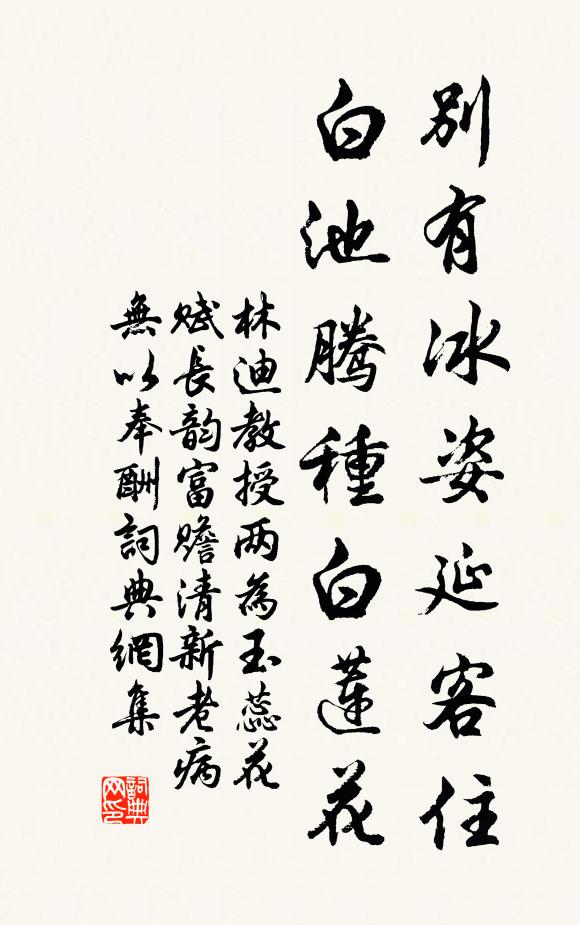 別有冰姿延客住
白池騰種白蓮花
林迪教授两為玉蕊花
賦長韵富贍清新老病
無以奉酬詞典網集
詞典网印